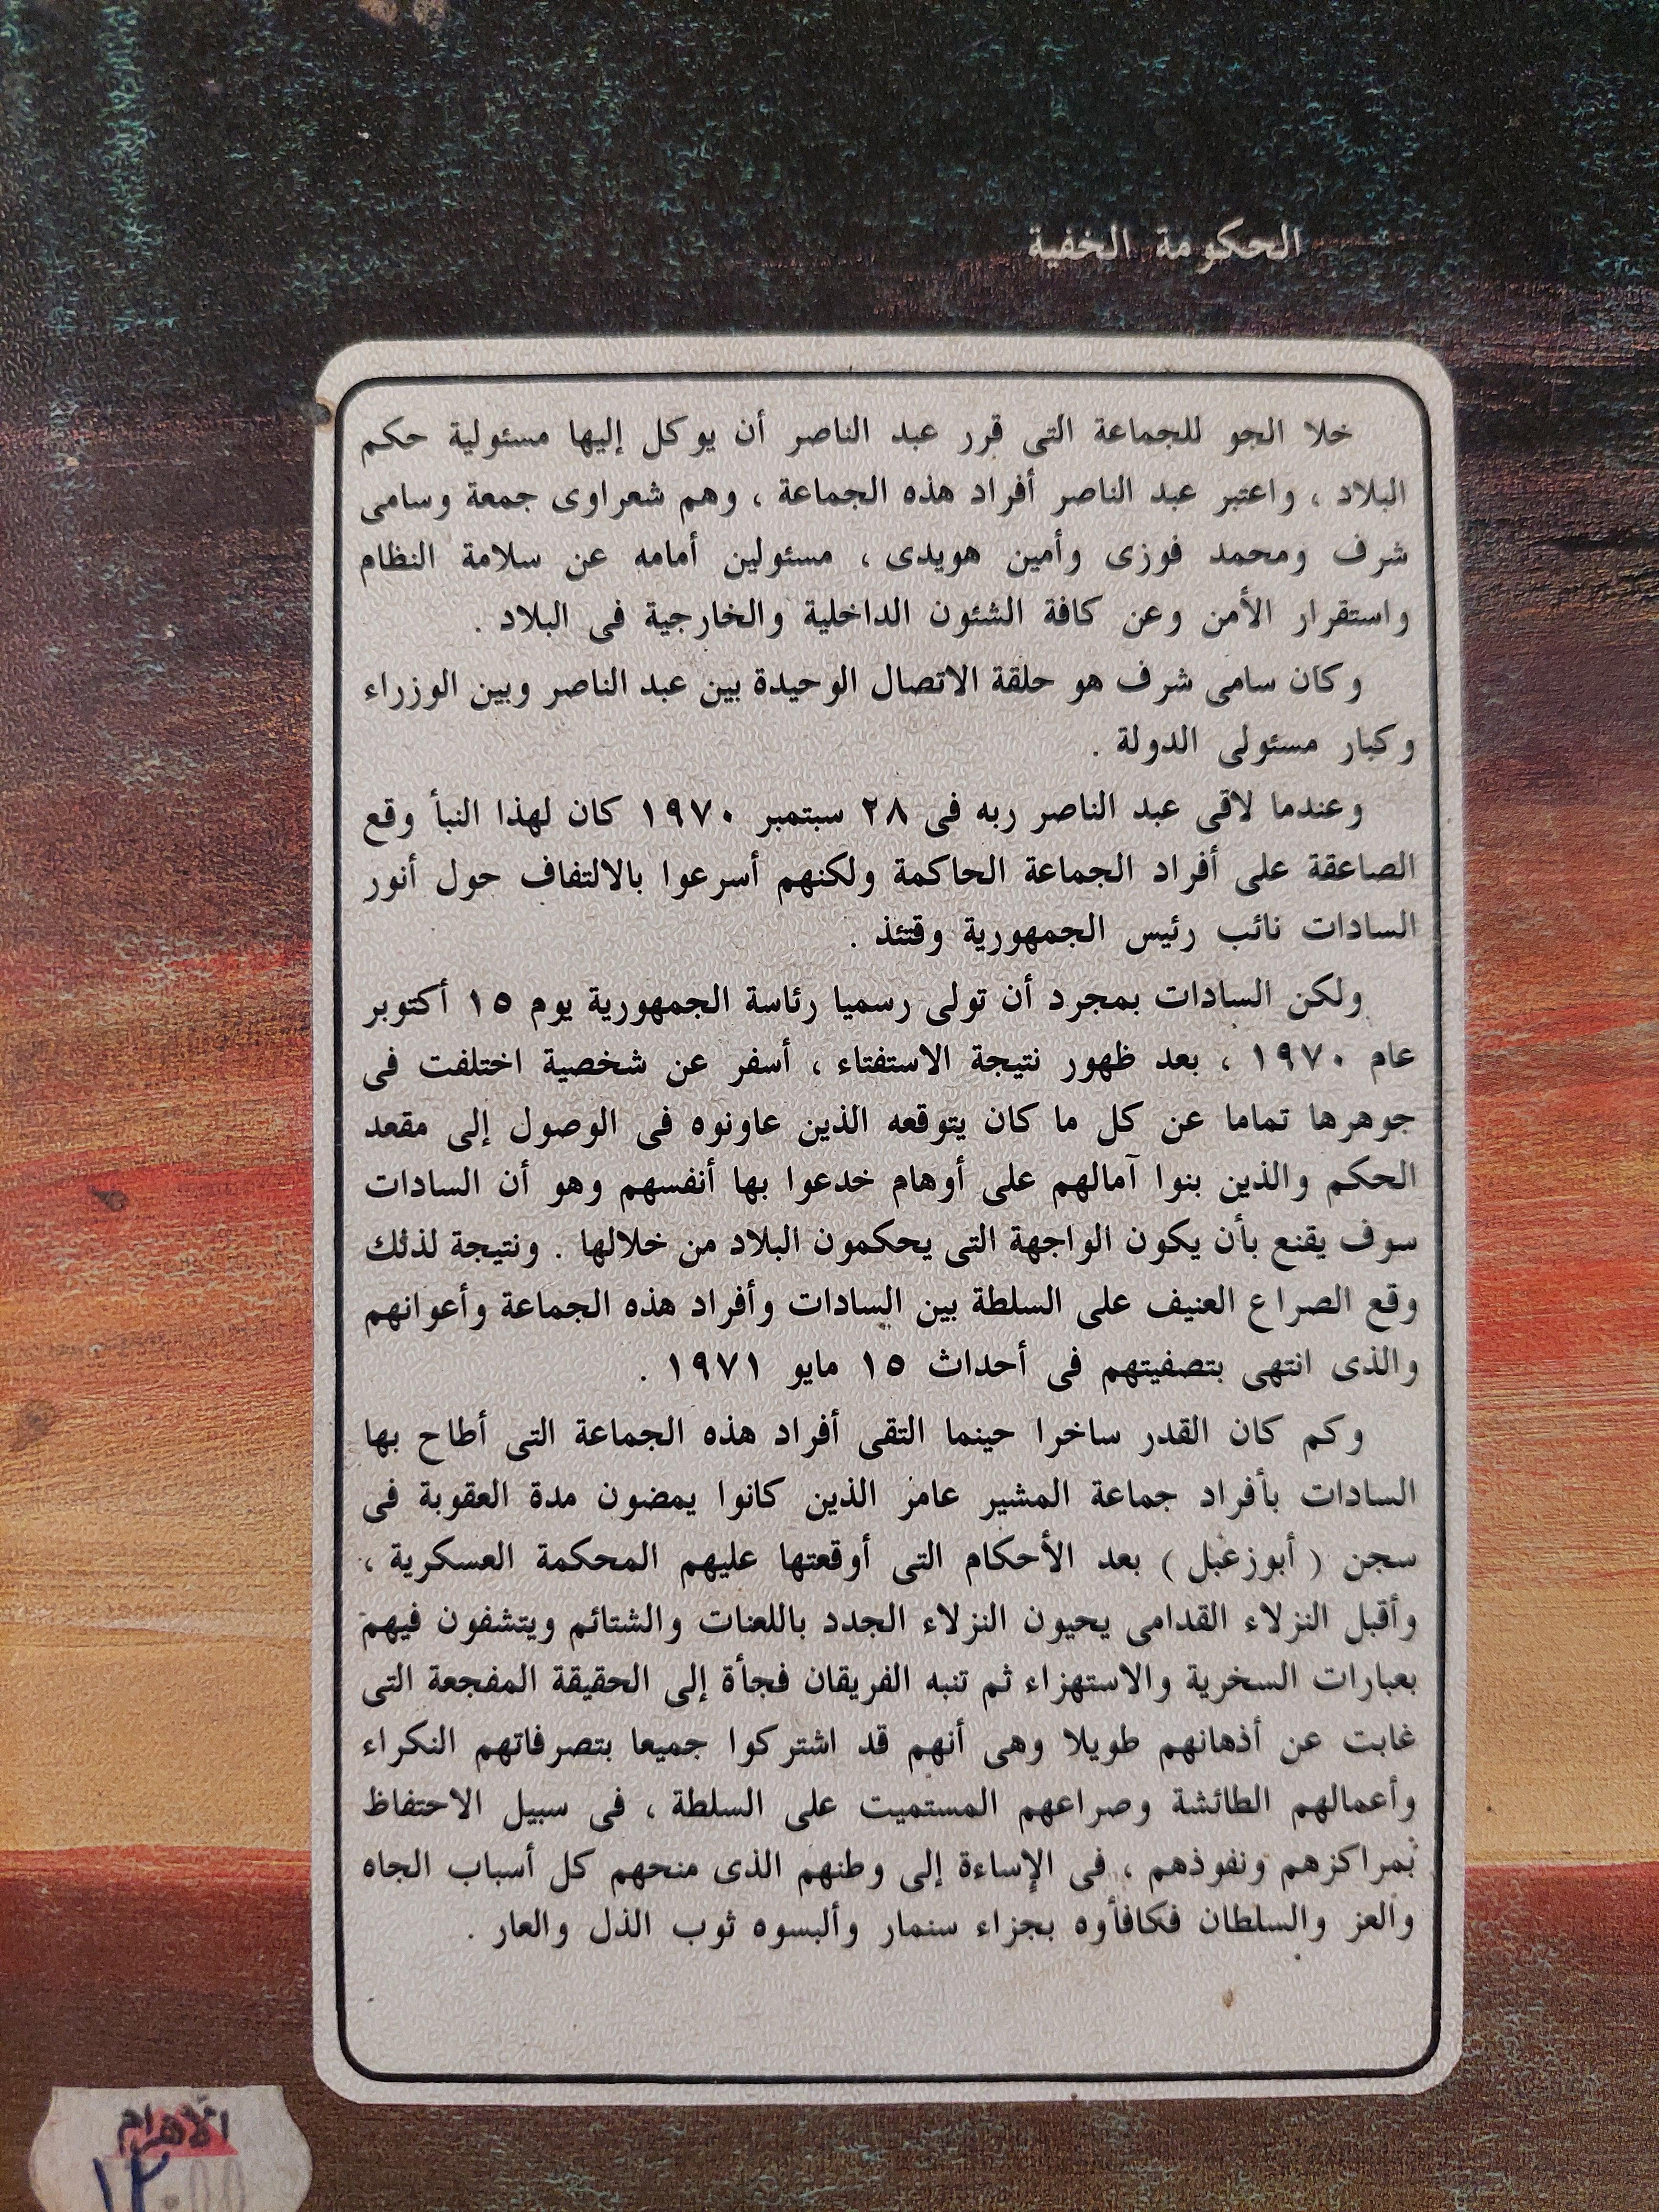 الحكومة الخفية
خلا الجو للجماعة التى قرر عبد الناصر أن يوكل إليها مسئولية حكم
البلاد ، واعتبر عبد الناصر أفراد هذه الجماعة ، وهم شعراوى جمعة وسامى
شرف ومحمد فوزى وأمين هويدى ، مسئولين أمامه عن سلامة النظام
واستقرار الأمن وعن كافة الشئون الداخلية والخارجية فى البلاد .
وكان سامى شرف هو حلقة الاتصال الوحيدة بين عبد الناصر وبين الوزراء
وكبار مسئولى الدولة .
وعندما لاقى عبد الناصر ربه فى ٢٨ سبتمبر ١٩٧٠ كان لهذا النبأ وقع
الصاعقة على أفراد الجماعة الحاكمة ولكنهم أسرعوا بالالتفاف حول أنور
السادات نائب رئيس الجمهورية وقتئذ .
ولكن السادات بمجرد أن تولى رسميا رئاسة الجمهورية يوم ١٥ أكتوبر
عام ١٩٧٠ ، بعد ظهور نتيجة الاستفتاء ، أسفر عن شخصية اختلفت فى
جوهرها تماما عن كل ما كان يتوقعه الذين عاونوه فى الوصول إلى مقعد
الحكم والذين بنوا آمالهم على أوهام خدعوا بها أنفسهم وهو أن السادات
سوف يقنع بأن يكون الواجهة التى يحكمون البلاد من خلالها . ونتيجة لذلك
وقع الصراع العنيف على السلطة بين السادات وأفراد هذه الجماعة وأعوانهم
والذى انتهى بتصفيتهم فى أحداث ١٥ مايو ١٩٧١ .
وكم كان القدر ساخرا حينما التقى أفراد هذه الجماعة التى أطاح بها
السادات بأفراد جماعة المشير عامر الذين كانوا يمضون مدة العقوبة فى
سجن ( أبوزعبل ) بعد الأحكام التى أوقعتها عليهم المحكمة العسكرية ،
وأقبل النزلاء القدامى يحيون النزلاء الجدد باللعنات والشتائم ويتشفون فيهم
بعبارات السخرية والاستهزاء ثم تنبه الفريقان فجأة إلى الحقيقة المفجعة التى
غابت عن أذهانهم طويلا وهى أنهم قد اشتركوا جميعا بتصرفاتهم النكراء
وأعمالهم الطائشة وصراعهم المستميت على السلطة ، فى سبيل الاحتفاظ
بمراكزهم ونفوذهم ، فى الإساءة إلى وطنهم الذى منحهم كل أسباب الجاه
والعز والسلطان فكافأوه بجزاء سنمار وألبسوه ثوب الذل والعار .
الأهرام